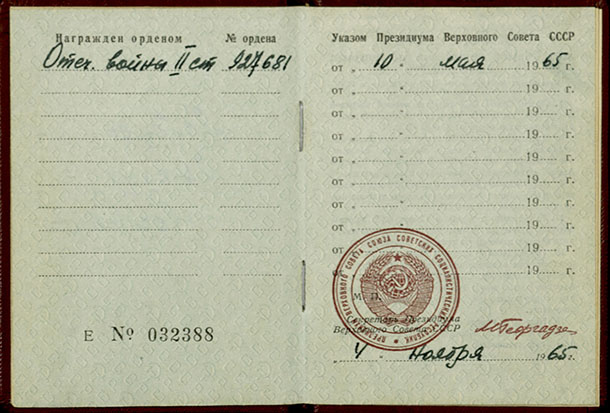 Награжден орденом № ордена
Отеч. войны II ст 927681
Е № 032388
Указом Президиума Верховного Совета СССР
от „ 10 “ мая 1965 г.
от „ “ 19 г.
от „ “ 19 г.
от „ “ 19 г.
от „ “ 19 г.
от „ “ 19 г.
от „ “ 19 г.
от „ “ 19 г.
от „ “ 19 г.
от „ “ 19 г.
ПРЕЗИДИУМ ВЕРХОВНОГО СОВЕТА СОЮЗА СОВЕТСКИХ СОЦИАЛИСТИЧЕСКИХ РЕСПУБЛИК
М. П.
Секретарь Президиума
Верховного Совета СССР МГеоргадзе
4 ноября 1965 г.